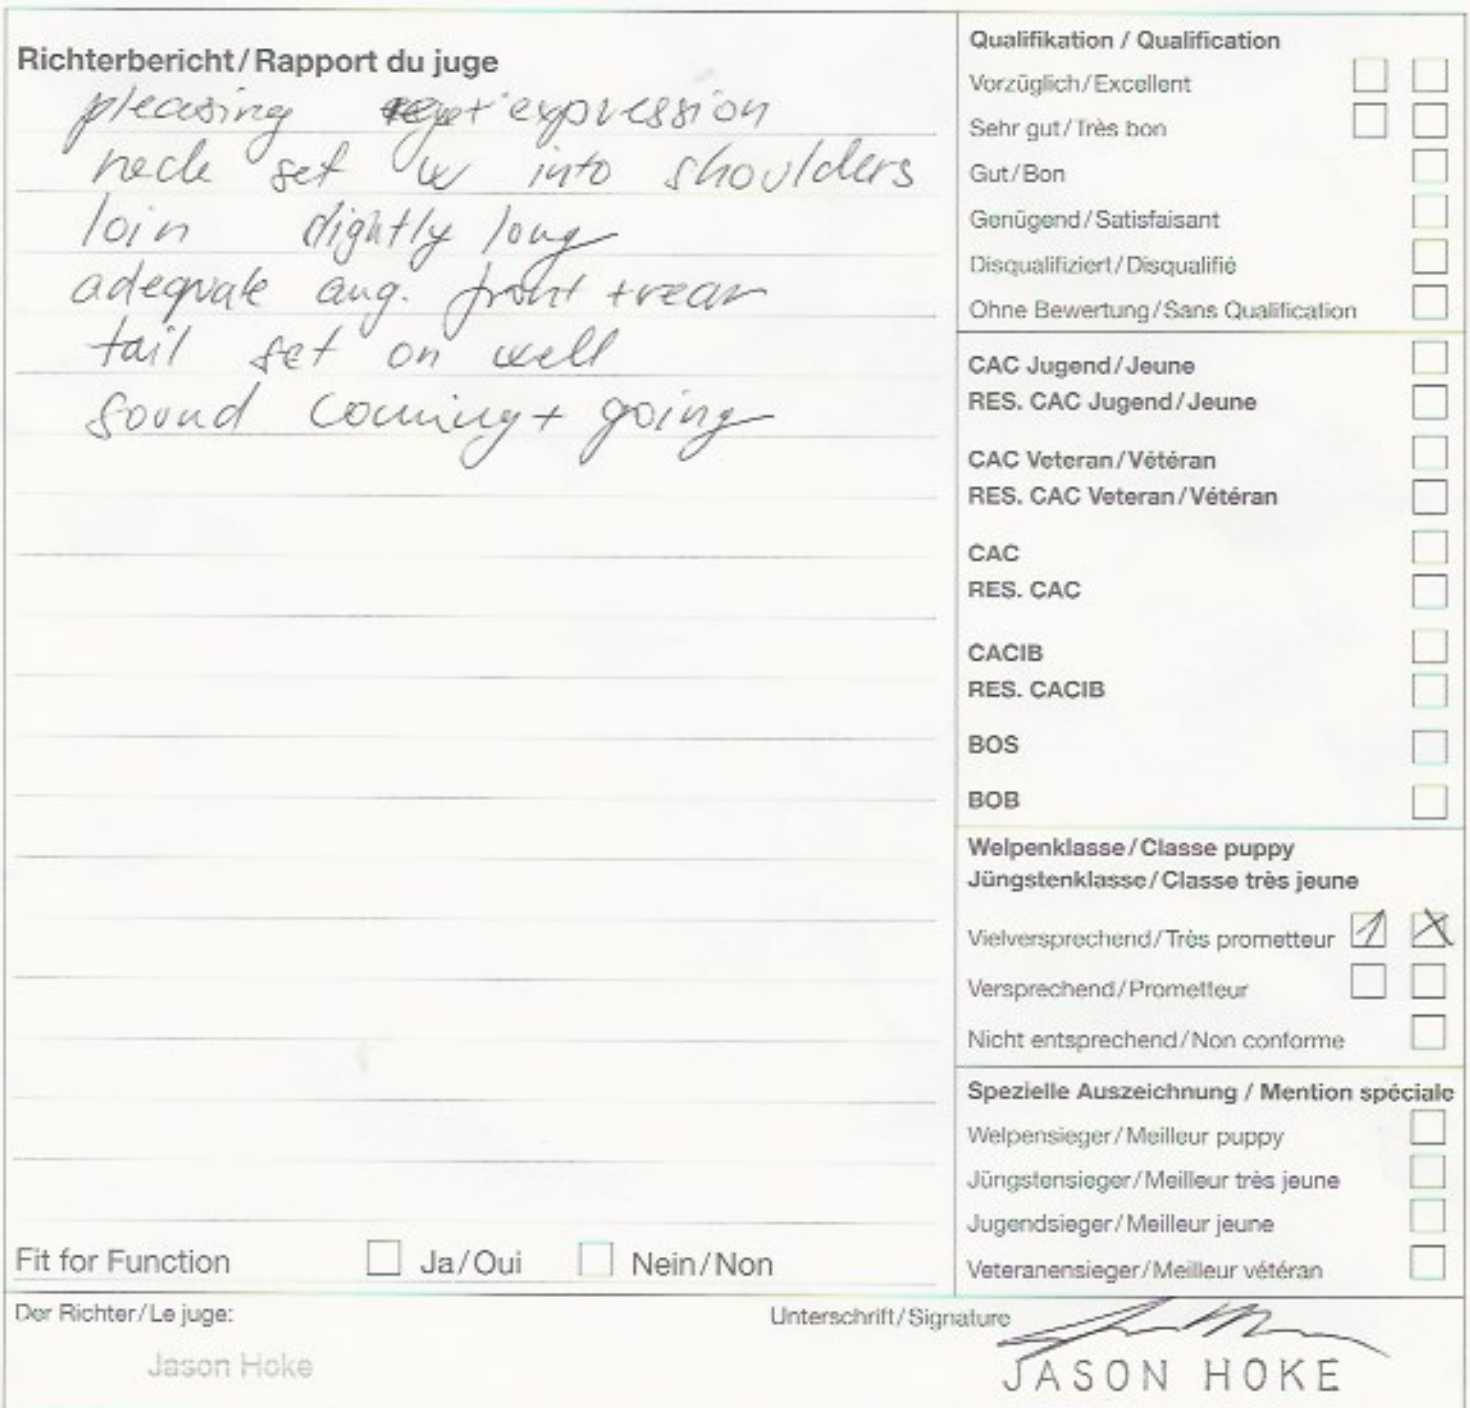 Richterbericht/Rapport du juge
pleasing expression
neck set w into shoulders
loin slightly long
adequate ang. front + rear
tail set on well
sound coming + going
Fit for Function Ja/Oui Nein/Non
Der Richter/Le juge:
Jason Hoke
Unterschrift/Signature
JASON HOKE
Qualifikation / Qualification
Vorzüglich/Excellent
Sehr gut/Très bon
Gut/Bon
Genügend/Satisfaisant
Disqualifiziert/Disqualifié
Ohne Bewertung/Sans Qualification
CAC Jugend/Jeune
RES. CAC Jugend/Jeune
CAC Veteran/Vétéran
RES. CAC Veteran/Vétéran
CAC
RES. CAC
CACIB
RES. CACIB
BOS
BOB
Welpenklasse/Classe puppy
Jüngstenklasse/Classe très jeune
Vielversprechend/Très prometteur 1 X
Versprechend/Prometteur
Nicht entsprechend/Non conforme
Spezielle Auszeichnung / Mention spéciale
Welpensieger/Meilleur puppy
Jüngstensieger/Meilleur très jeune
Jugendsieger/Meilleur jeune
Veteranensieger/Meilleur vétéran